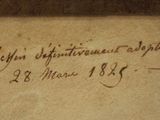 définitivement adopt
28 Mars 1825